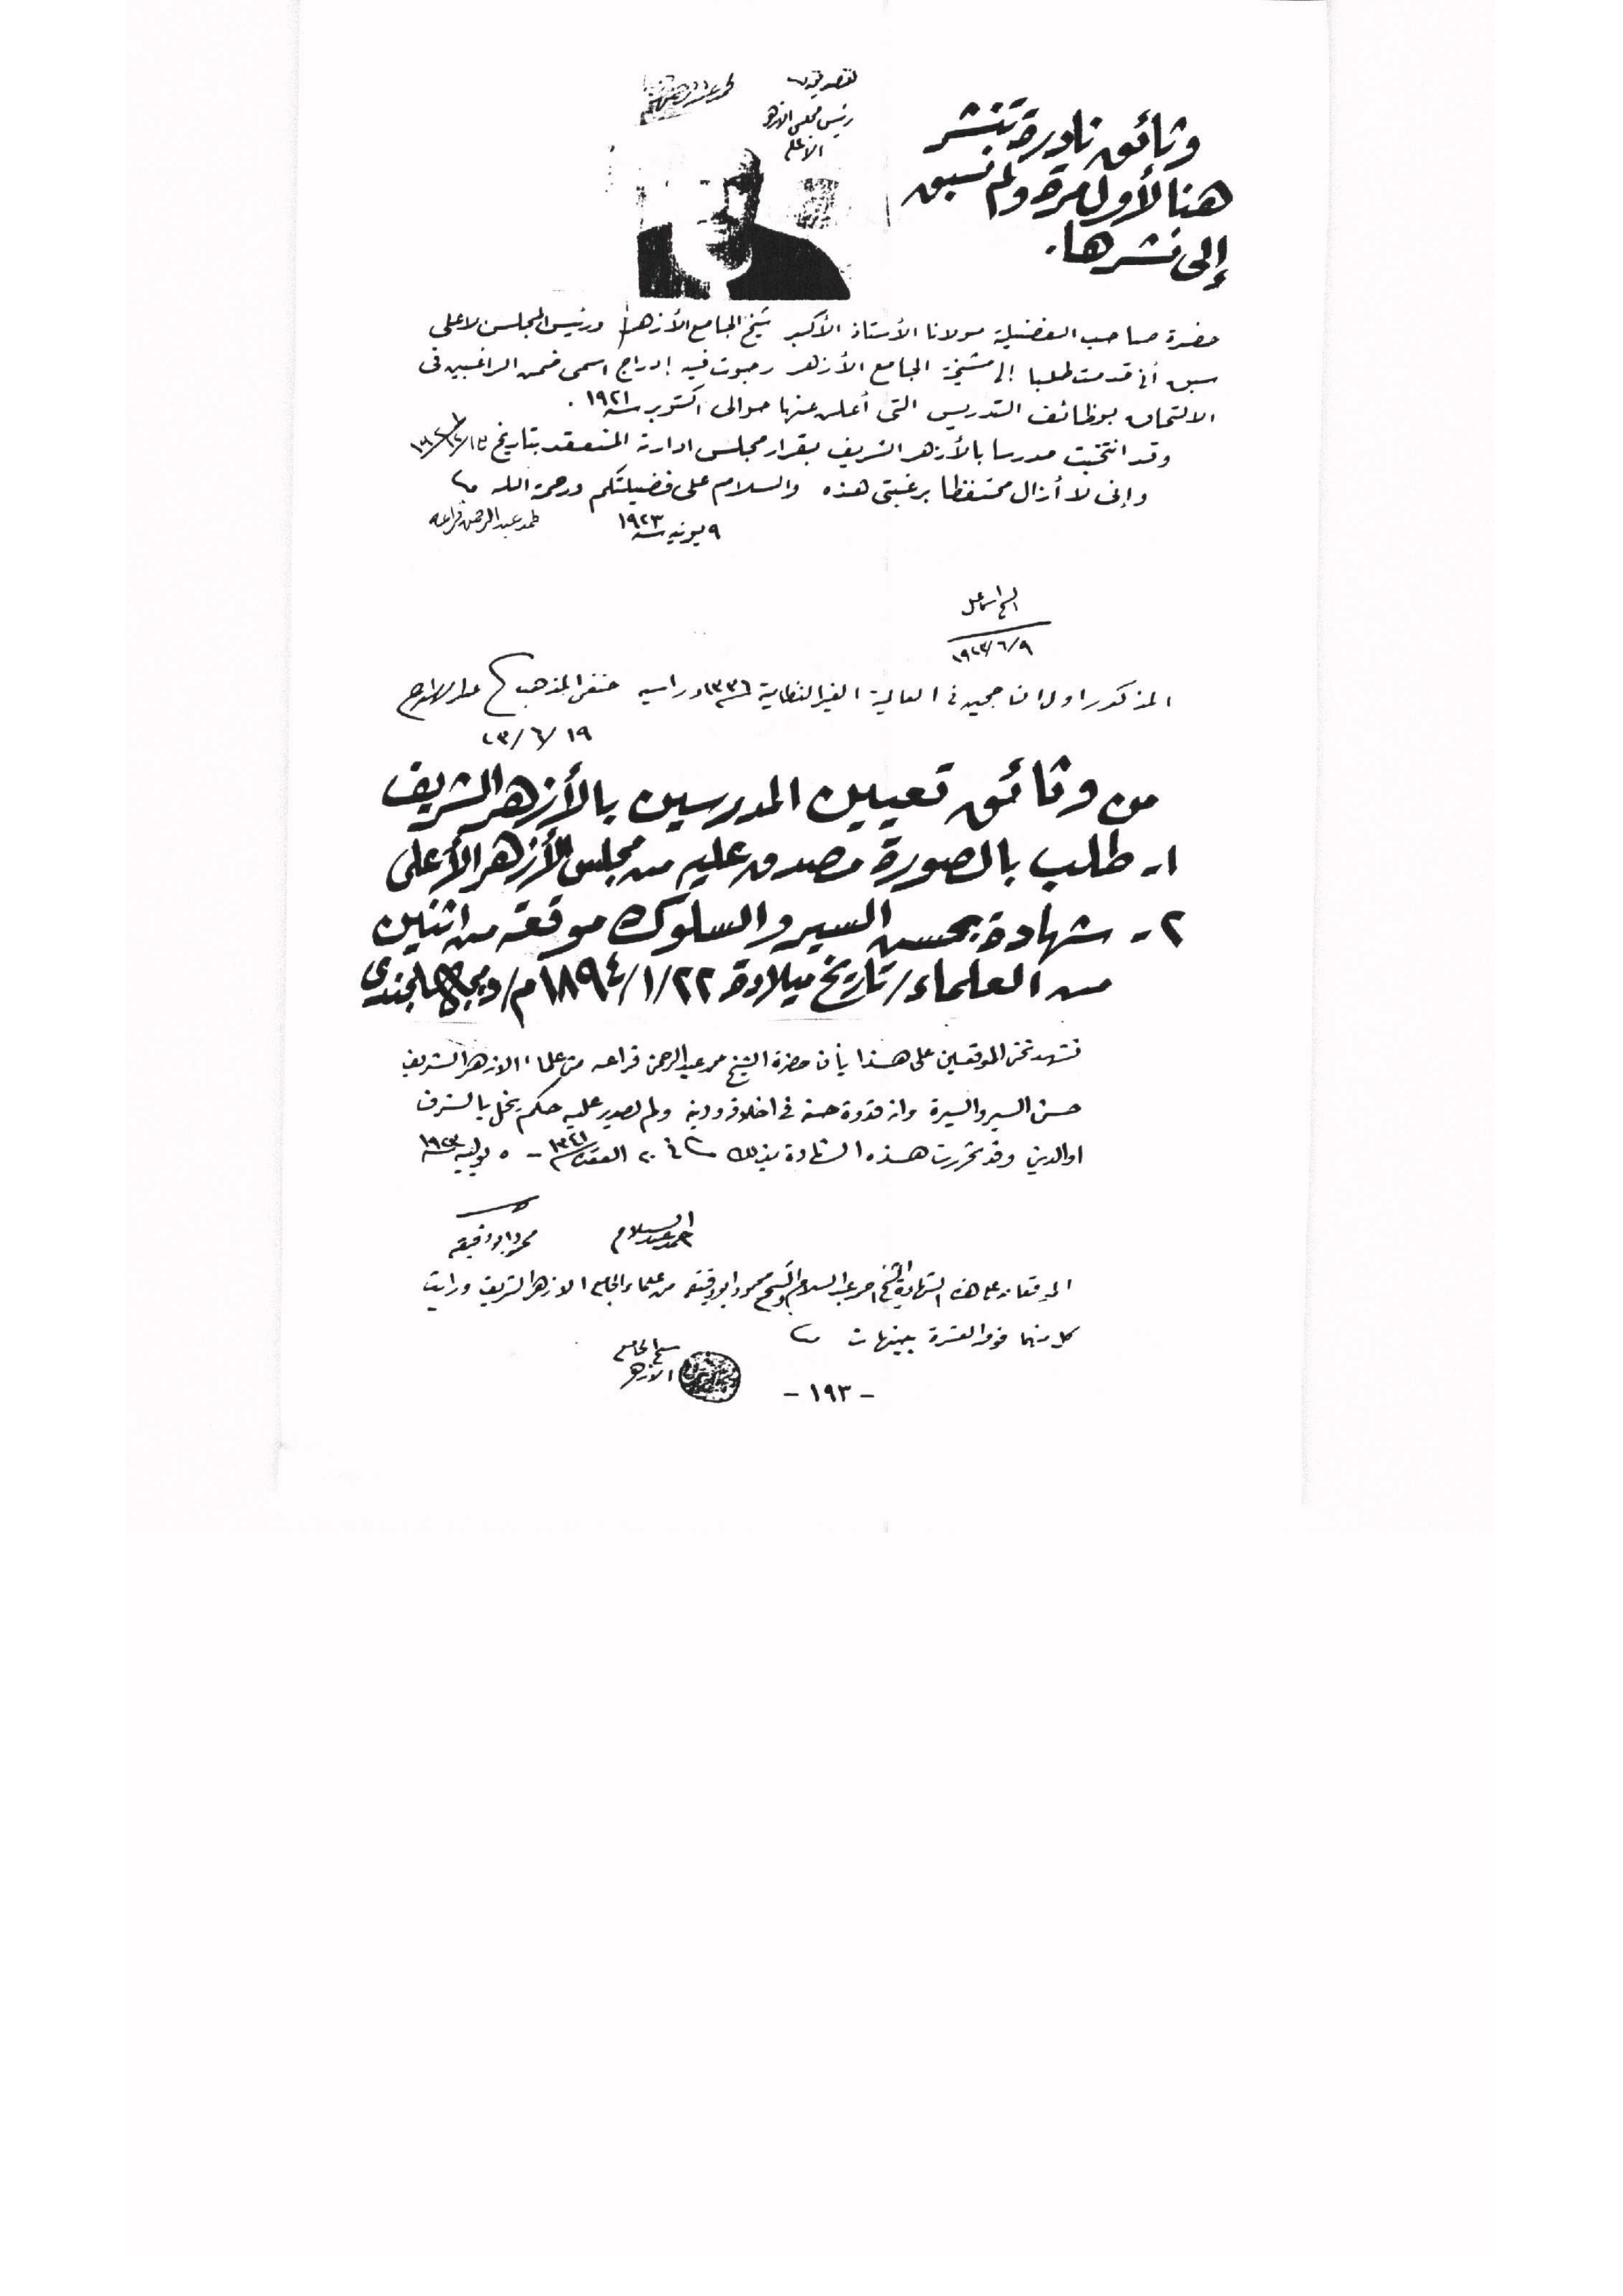 وثائق نادرة تنشر
هنا لأول مرة ولم نسبق
إلى نشرها.
رئيس مجلس الازهر
الاعلى
حضرة صاحب الفضيلة مولانا الأستاذ الأكبر شيخ الجامع الأزهر ورئيس المجلس الاعلى
سبق أنى قدمت طلبا إلى مشيخة الجامع الأزهر رجوت فيه إدراج اسمى ضمن الراغبين فى
الالتحاق بوظائف التدريس التى أعلن عنها حوالى اكتوبر سنة ١٩٢١ .
وقد انتخبت مدرسا بالأزهر الشريف بقرار مجلس ادارته المنعقد بتاريخ
وإنى لا أزال محتفظا برغبتى هذه والسلام على فضيلتكم ورحمة الله
محمد عبد الرحمن قراعه
٩ يونيه سنة ١٩٢٣
١٩٢٣/٦/٩
المذكور اول الناجحين فى العالمية الغير النظامية سنة ١٣٣٦ دراسيه حنفى المذهب
١٩/٦/٢٣
من وثائق تعيين المدرسين بالأزهر الشريف
١- طلب بالصورة مصدق عليه من مجلس الأزهر الأعلى
٢- شهادة بحسن السير والسلوك موقعة من اثنين
من العلماء/ تاريخ ميلادة ٢٢/١/١٨٩٤م/ د مجاهد الجندى
نشهد نحن الموقعين على هذا بأن حضرة الشيخ محمد عبد الرحمن قراعه من علماء الازهر الشريف
حسن السير والسيرة وانه قدوة حسنة فى اخلاقه ودينه ولم تصدر عليه حكم يخل بالشرف
او الدين وقد تحررت هذه الشهادة بذلك فى ٢٠ القعدة سنة ١٣٤١ - ٥ يوليه سنة ١٩٢٣
احمد عبد السلام
محمود ابو دقيقه
الموقعان على هذه الشهادة الشيخ احمد عبد السلام والشيخ محمود ابو دقيقه من علماء الجامع الازهر الشريف وراتب
كل منهما فوق العشرة جنيهات
شيخ الجامع
الازهر
- ١٩٣ -